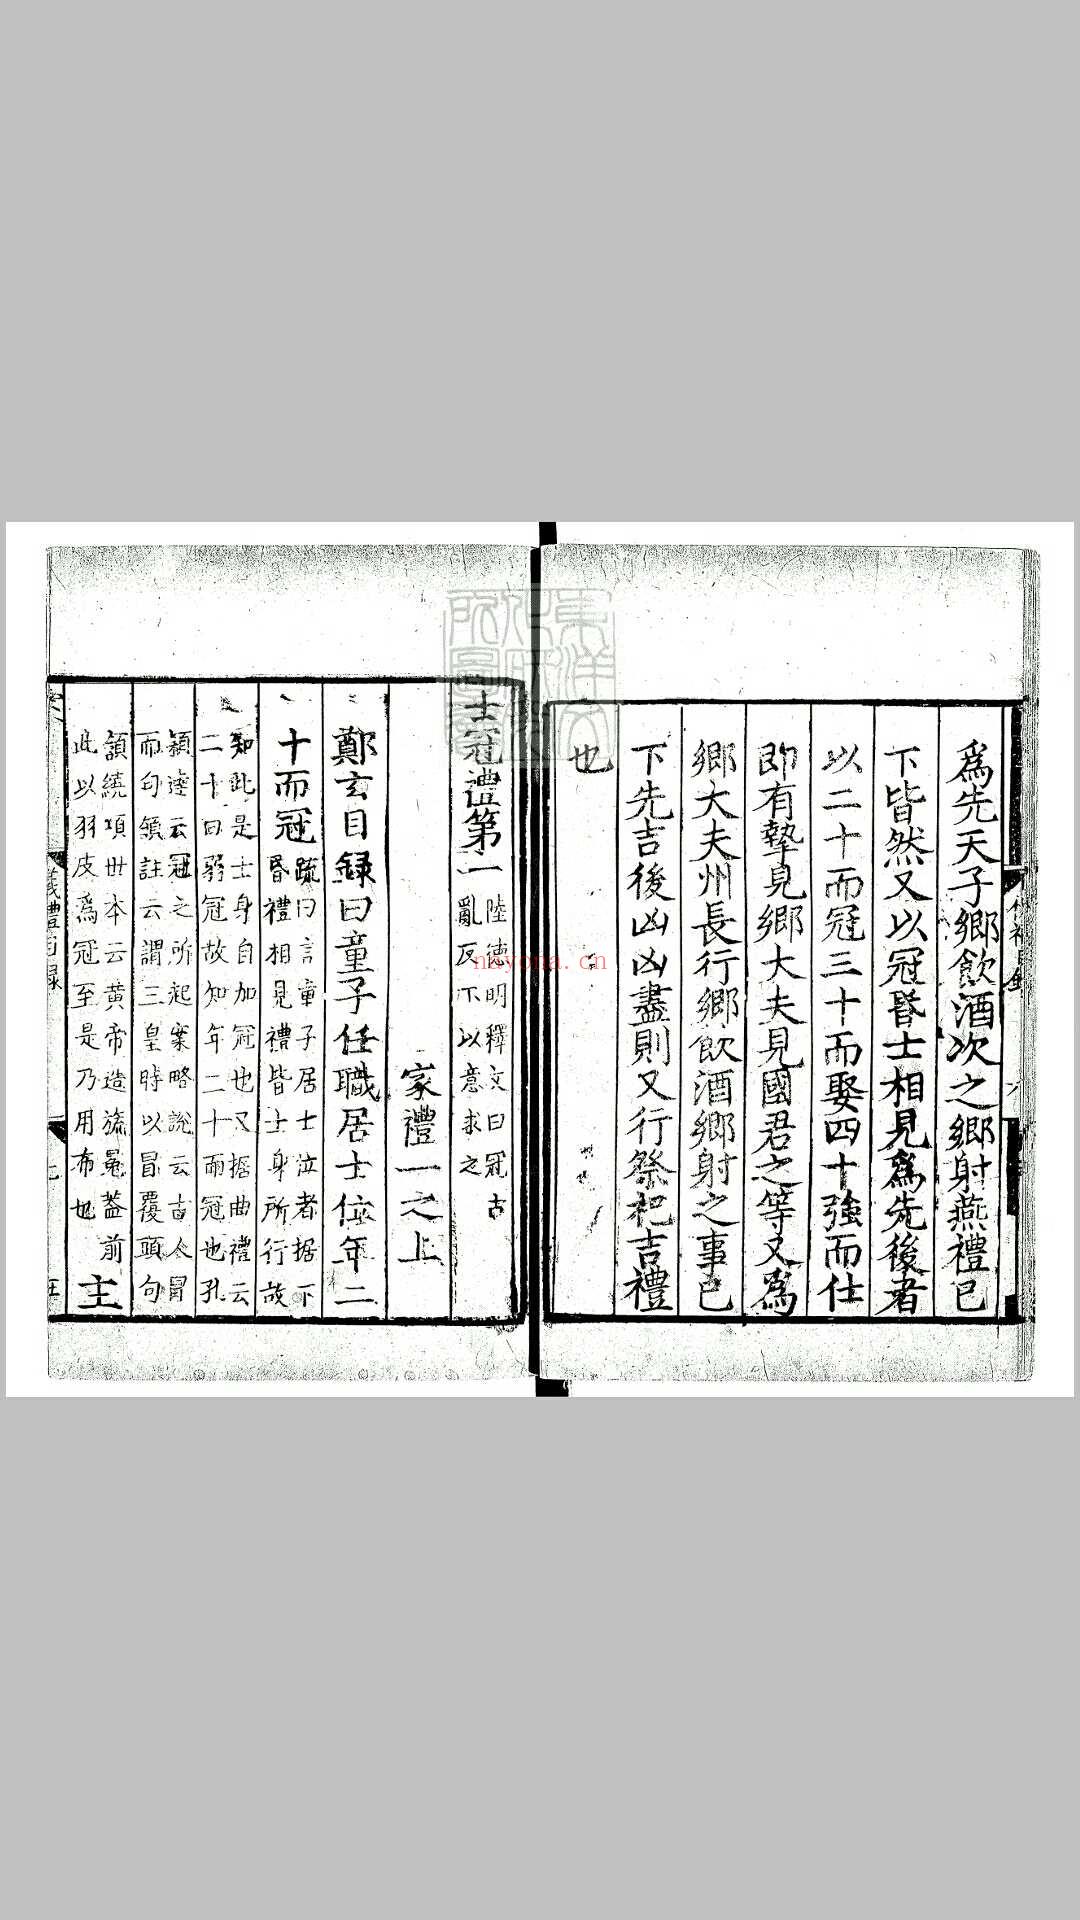 爲先天子鄉飲酒次之鄉射燕禮已
下皆然又以冠昏士相見爲先後者
以二十而冠三十而娶四十強而仕
即有摯見鄉大夫見國君之等又爲
鄉大夫州長行鄉飲酒鄉射之事已
下先吉後凶凶盡則又行祭祀吉禮
也
士冠禮第一
陸德明釋文曰冠古
亂反下以意求之
家禮一之上
鄭玄目録曰童子任職居士位年二
十而冠
疏曰言童子居士泣者據下
昏禮相見禮皆士身所行故
知此是士身自加冠也又據曲禮云
二十曰弱冠故知年二十而冠也孔
穎達云冠之所起案略說云古人冒
而句領註云謂三皇時以冒覆頭句
頷繞項世本云黄帝造旒冕蓋前
此以羽皮爲冠至是乃用布也
主
儀禮目録
nayona.cn